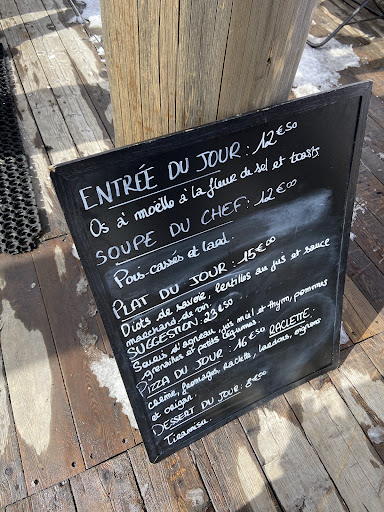 ENTRÉE DU JOUR: 12€50
Os à moëlle à la fleur de sel et toasts.
SOUPE DU CHEF: 12€00
Pois-cassés et lard.
PLAT DU JOUR: 15€00
Diots de savoie, lentilles au jus et sauce
marchand de vin.
SUGGESTION: 23€50
Souris d'agneau, jus miel et thym, pommes
grenailles et petits légumes.
PIZZA DU JOUR: 16€50 RACLETTE.
crème, fromages, raclette, lardons, oignons
et origan.
DESSERT DU JOUR: 8€50
Tiramisu.